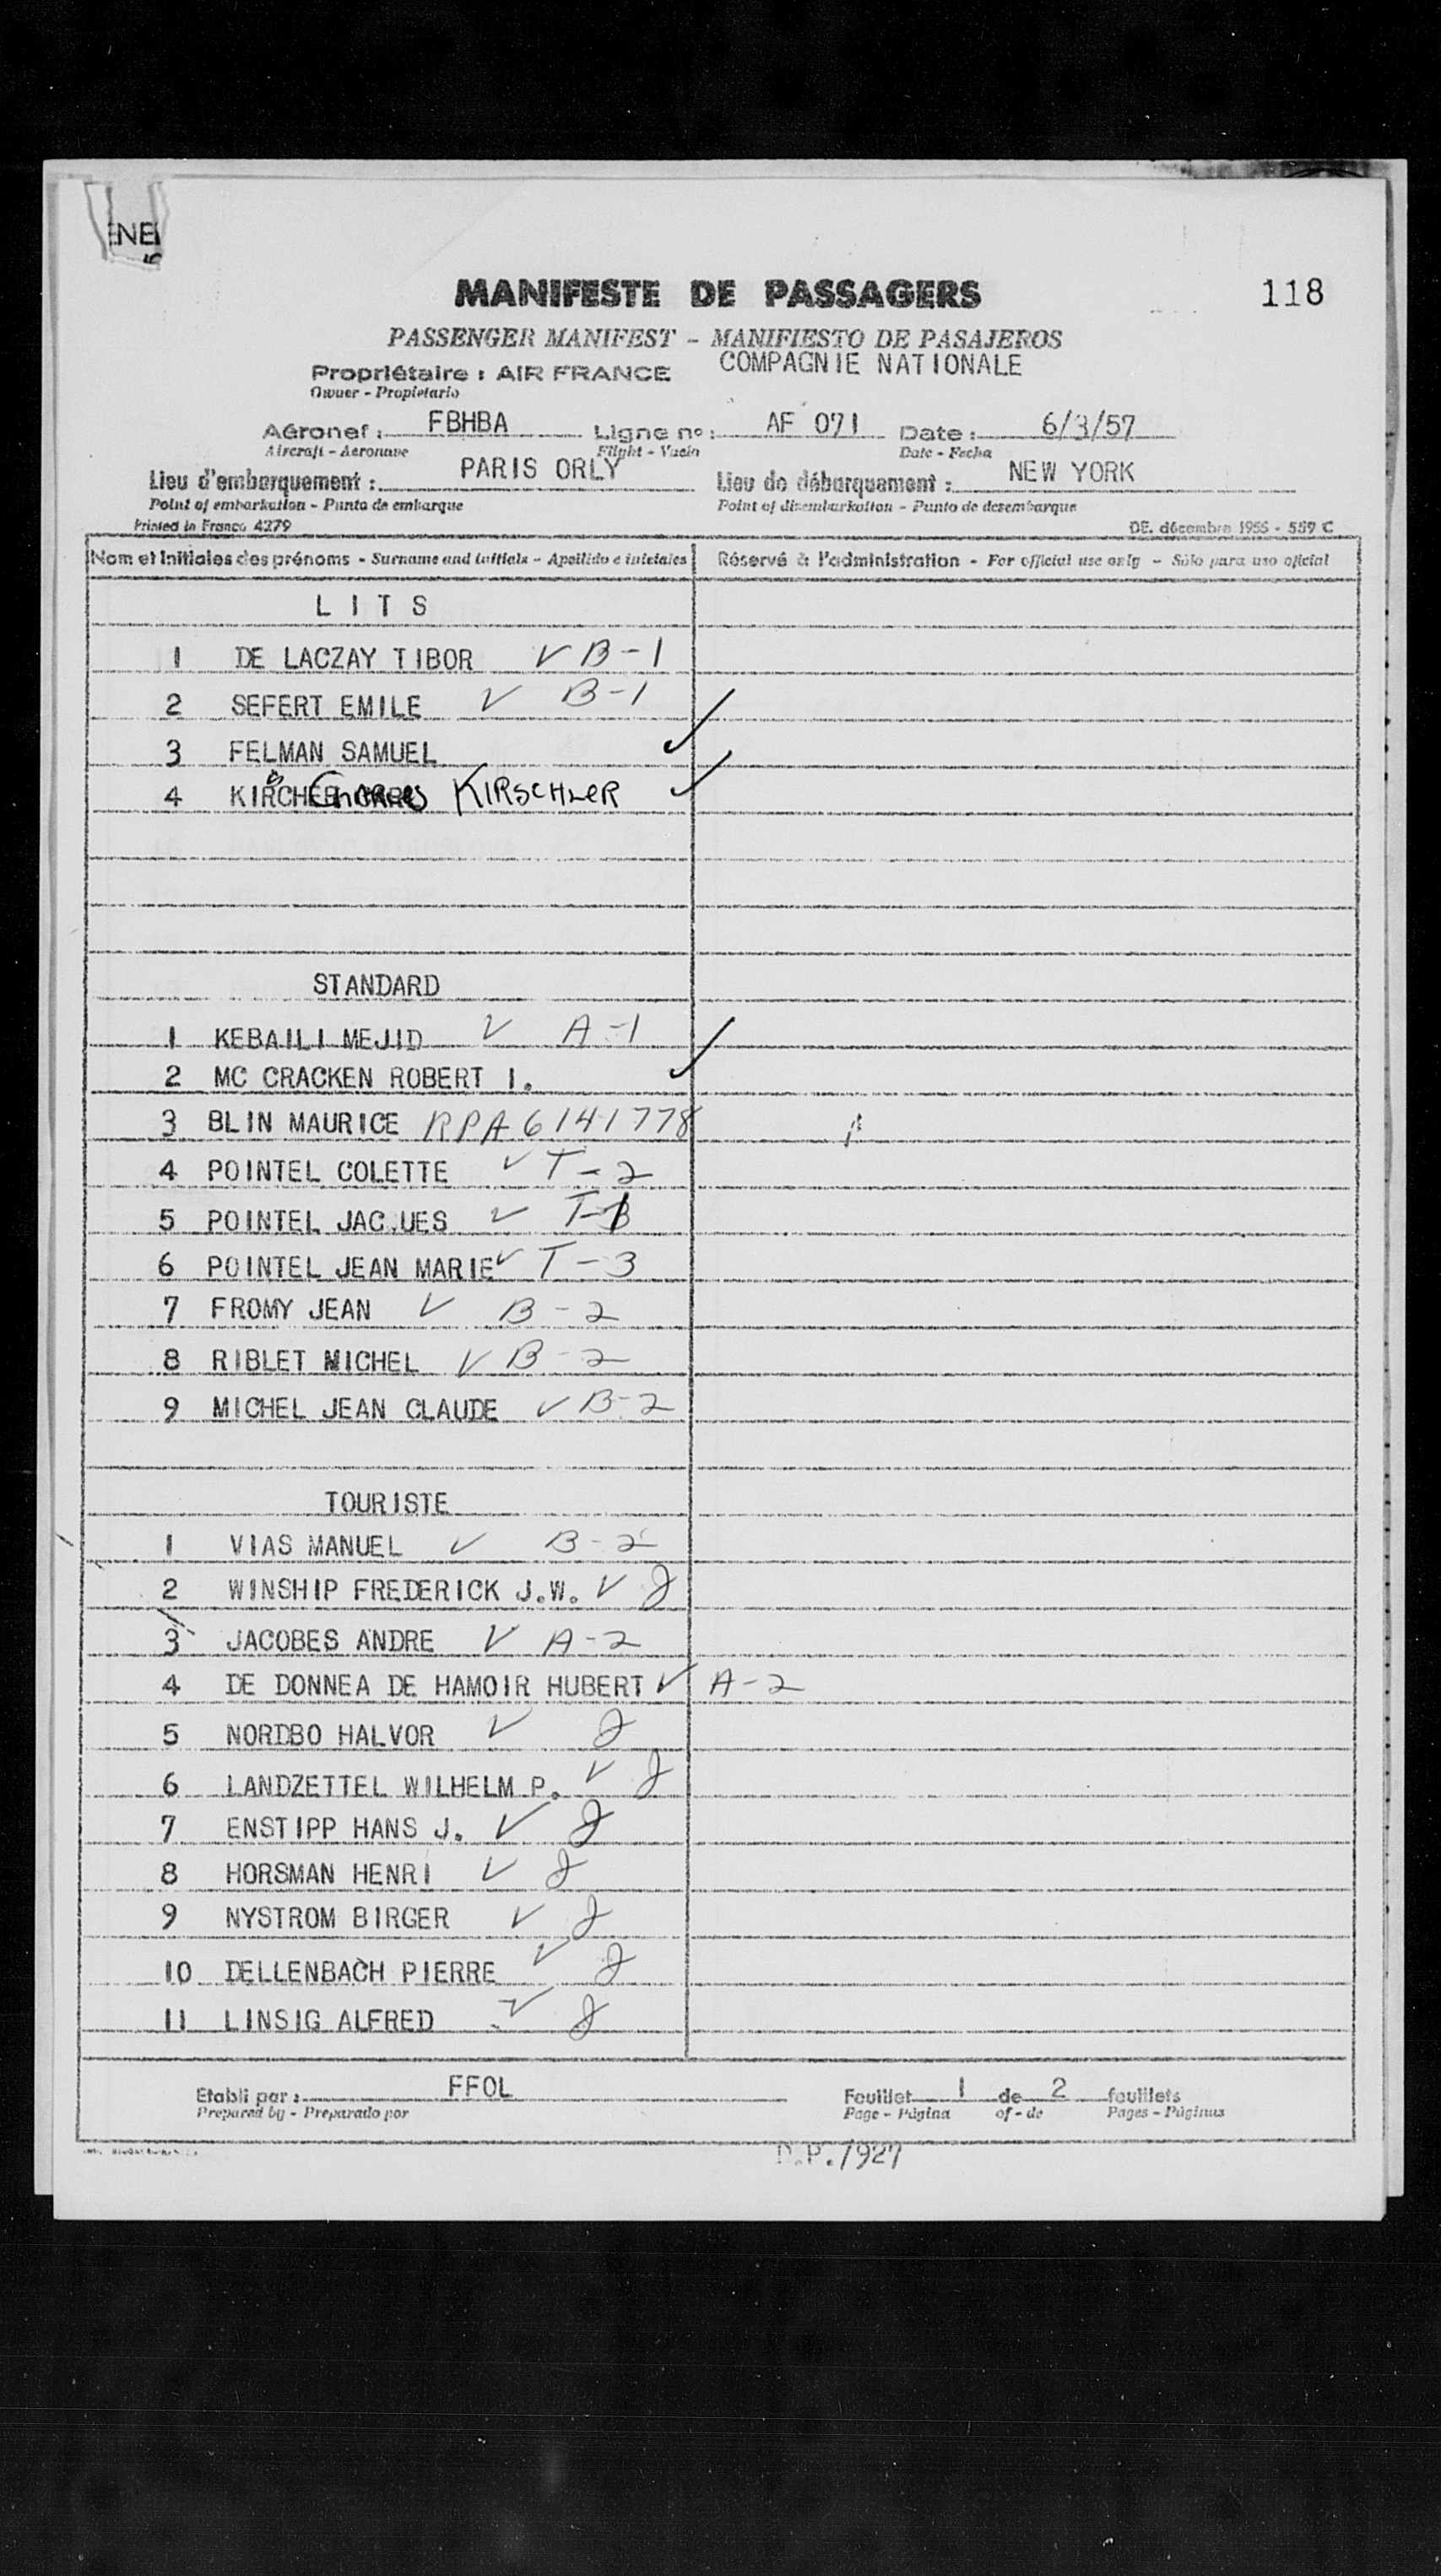 ENE
MANIFESTE DE PASSAGERS 118
PASSENGER MANIFEST - MANIFIESTO DE PASAJEROS
COMPAGNIE NATIONALE
Propriétaire : AIR FRANCE
Owner - Propietario
Aéronef : FBHBA Ligne no : AF 071 Date : 6/3/57
Aircraft - Aeronave Flight - Vuelo Date - Fecha
Lieu d'embarquement : PARIS ORLY Lieu de débarquement : NEW YORK
Point of embarkation - Punto de embarque Point of disembarkation - Punto de desembarque
Printed in France 4279 DE. décembre 1955 - 559 C
Nom et Initiales des prénoms - Surname and initials - Apellido e iniciales Réservé à l'administration - For official use only - Sólo para uso oficial
LITS
1 DE LACZAY TIBOR ✓ B-1
2 SEFERT EMILE ✓ B-1
3 FELMAN SAMUEL ✓
4 Charles KIRSCHLER ✓
STANDARD
1 KEBAILI MEJID ✓ A-1
2 MC CRACKEN ROBERT I. ✓
3 BLIN MAURICE RPA6141778
4 POINTEL COLETTE ✓ T-2
5 POINTEL JAC.UES ✓ T-1
6 POINTEL JEAN MARIE ✓ T-3
7 FROMY JEAN ✓ B-2
8 RIBLET MICHEL ✓ B-2
9 MICHEL JEAN CLAUDE ✓ B-2
TOURISTE
1 VIAS MANUEL ✓ B-2
2 WINSHIP FREDERICK J.W. ✓ J
3 JACOBES ANDRE ✓ A-2
4 DE DONNEA DE HAMOIR HUBERT ✓ A-2
5 NORDBO HALVOR ✓ J
6 LANDZETTEL WILHELM P. ✓ J
7 ENSTIPP HANS J. ✓ J
8 HORSMAN HENRI ✓ J
9 NYSTROM BIRGER ✓ J
10 DELLENBACH PIERRE ✓ J
11 LINSIG ALFRED ✓ J
Etabli par : FFOL Feuillet 1 de 2 feuillets
Prepared by - Preparado por Page - Página of - de Pages - Páginas
D.P./927